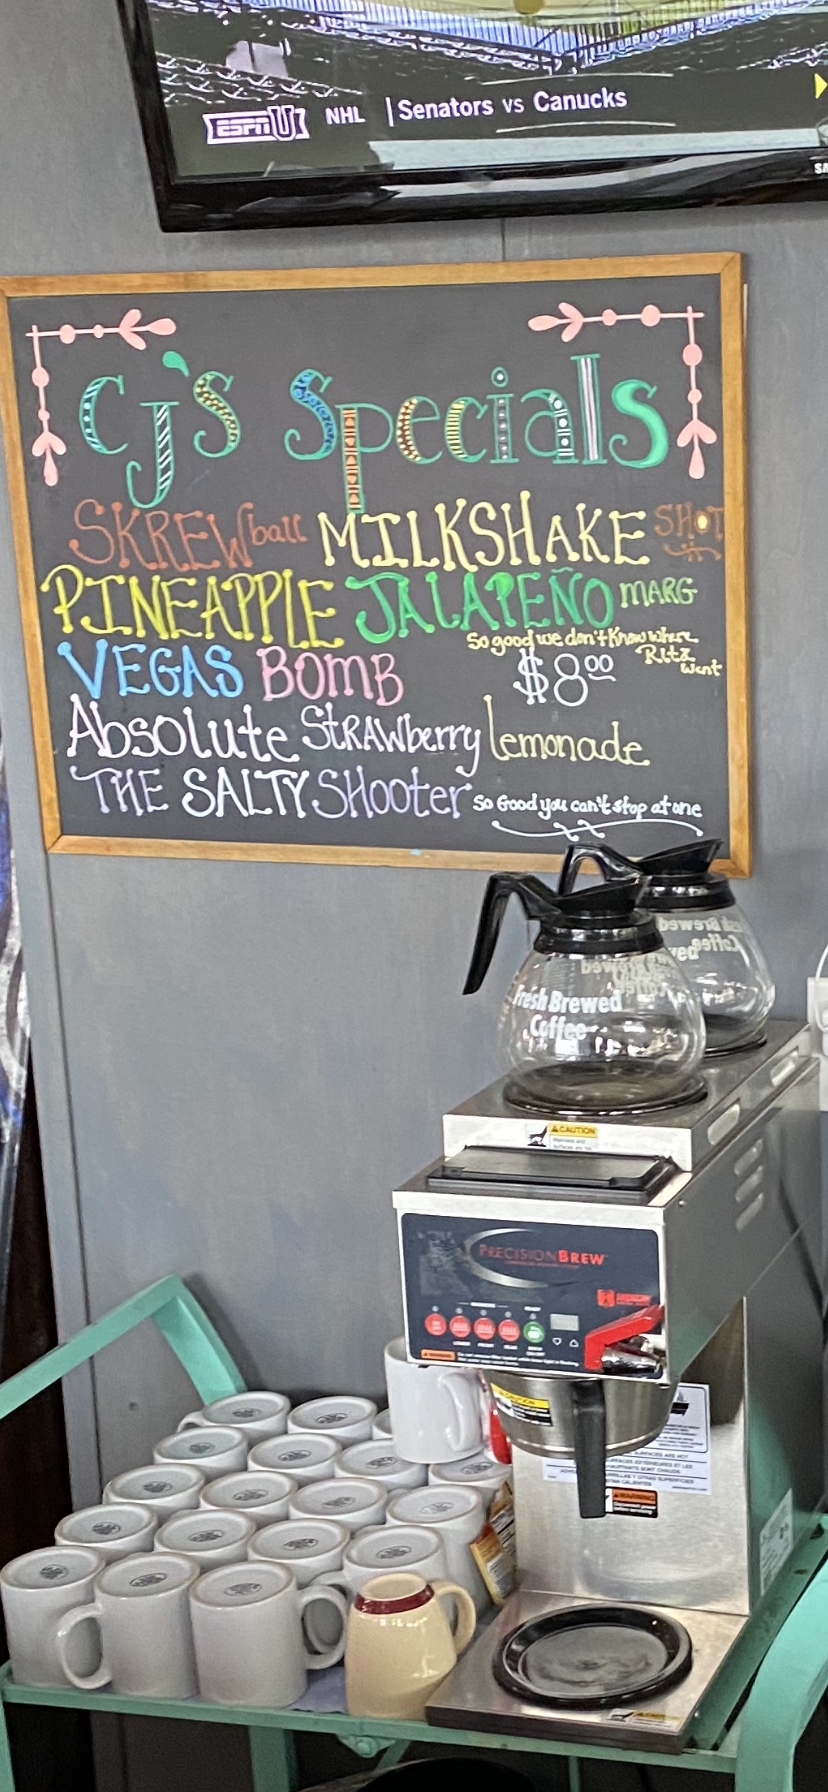 ESPNU NHL | Senators vs Canucks
CJ's Specials
SKREWball MILKSHAKE SHOT
PINEAPPLE JALAPEÑO MARG
So good we don't know where
Rita
went
VEGAS BOMB $8.00
Absolute STRAWberry lemonade
THE SALTY SHooter So Good you can't stop at one
Fresh Brewed
Coffee
Fresh Brewed
Coffee
CAUTION
PRECISIONBREW
AMERICAN
WARNING
CAUTION
WARNING